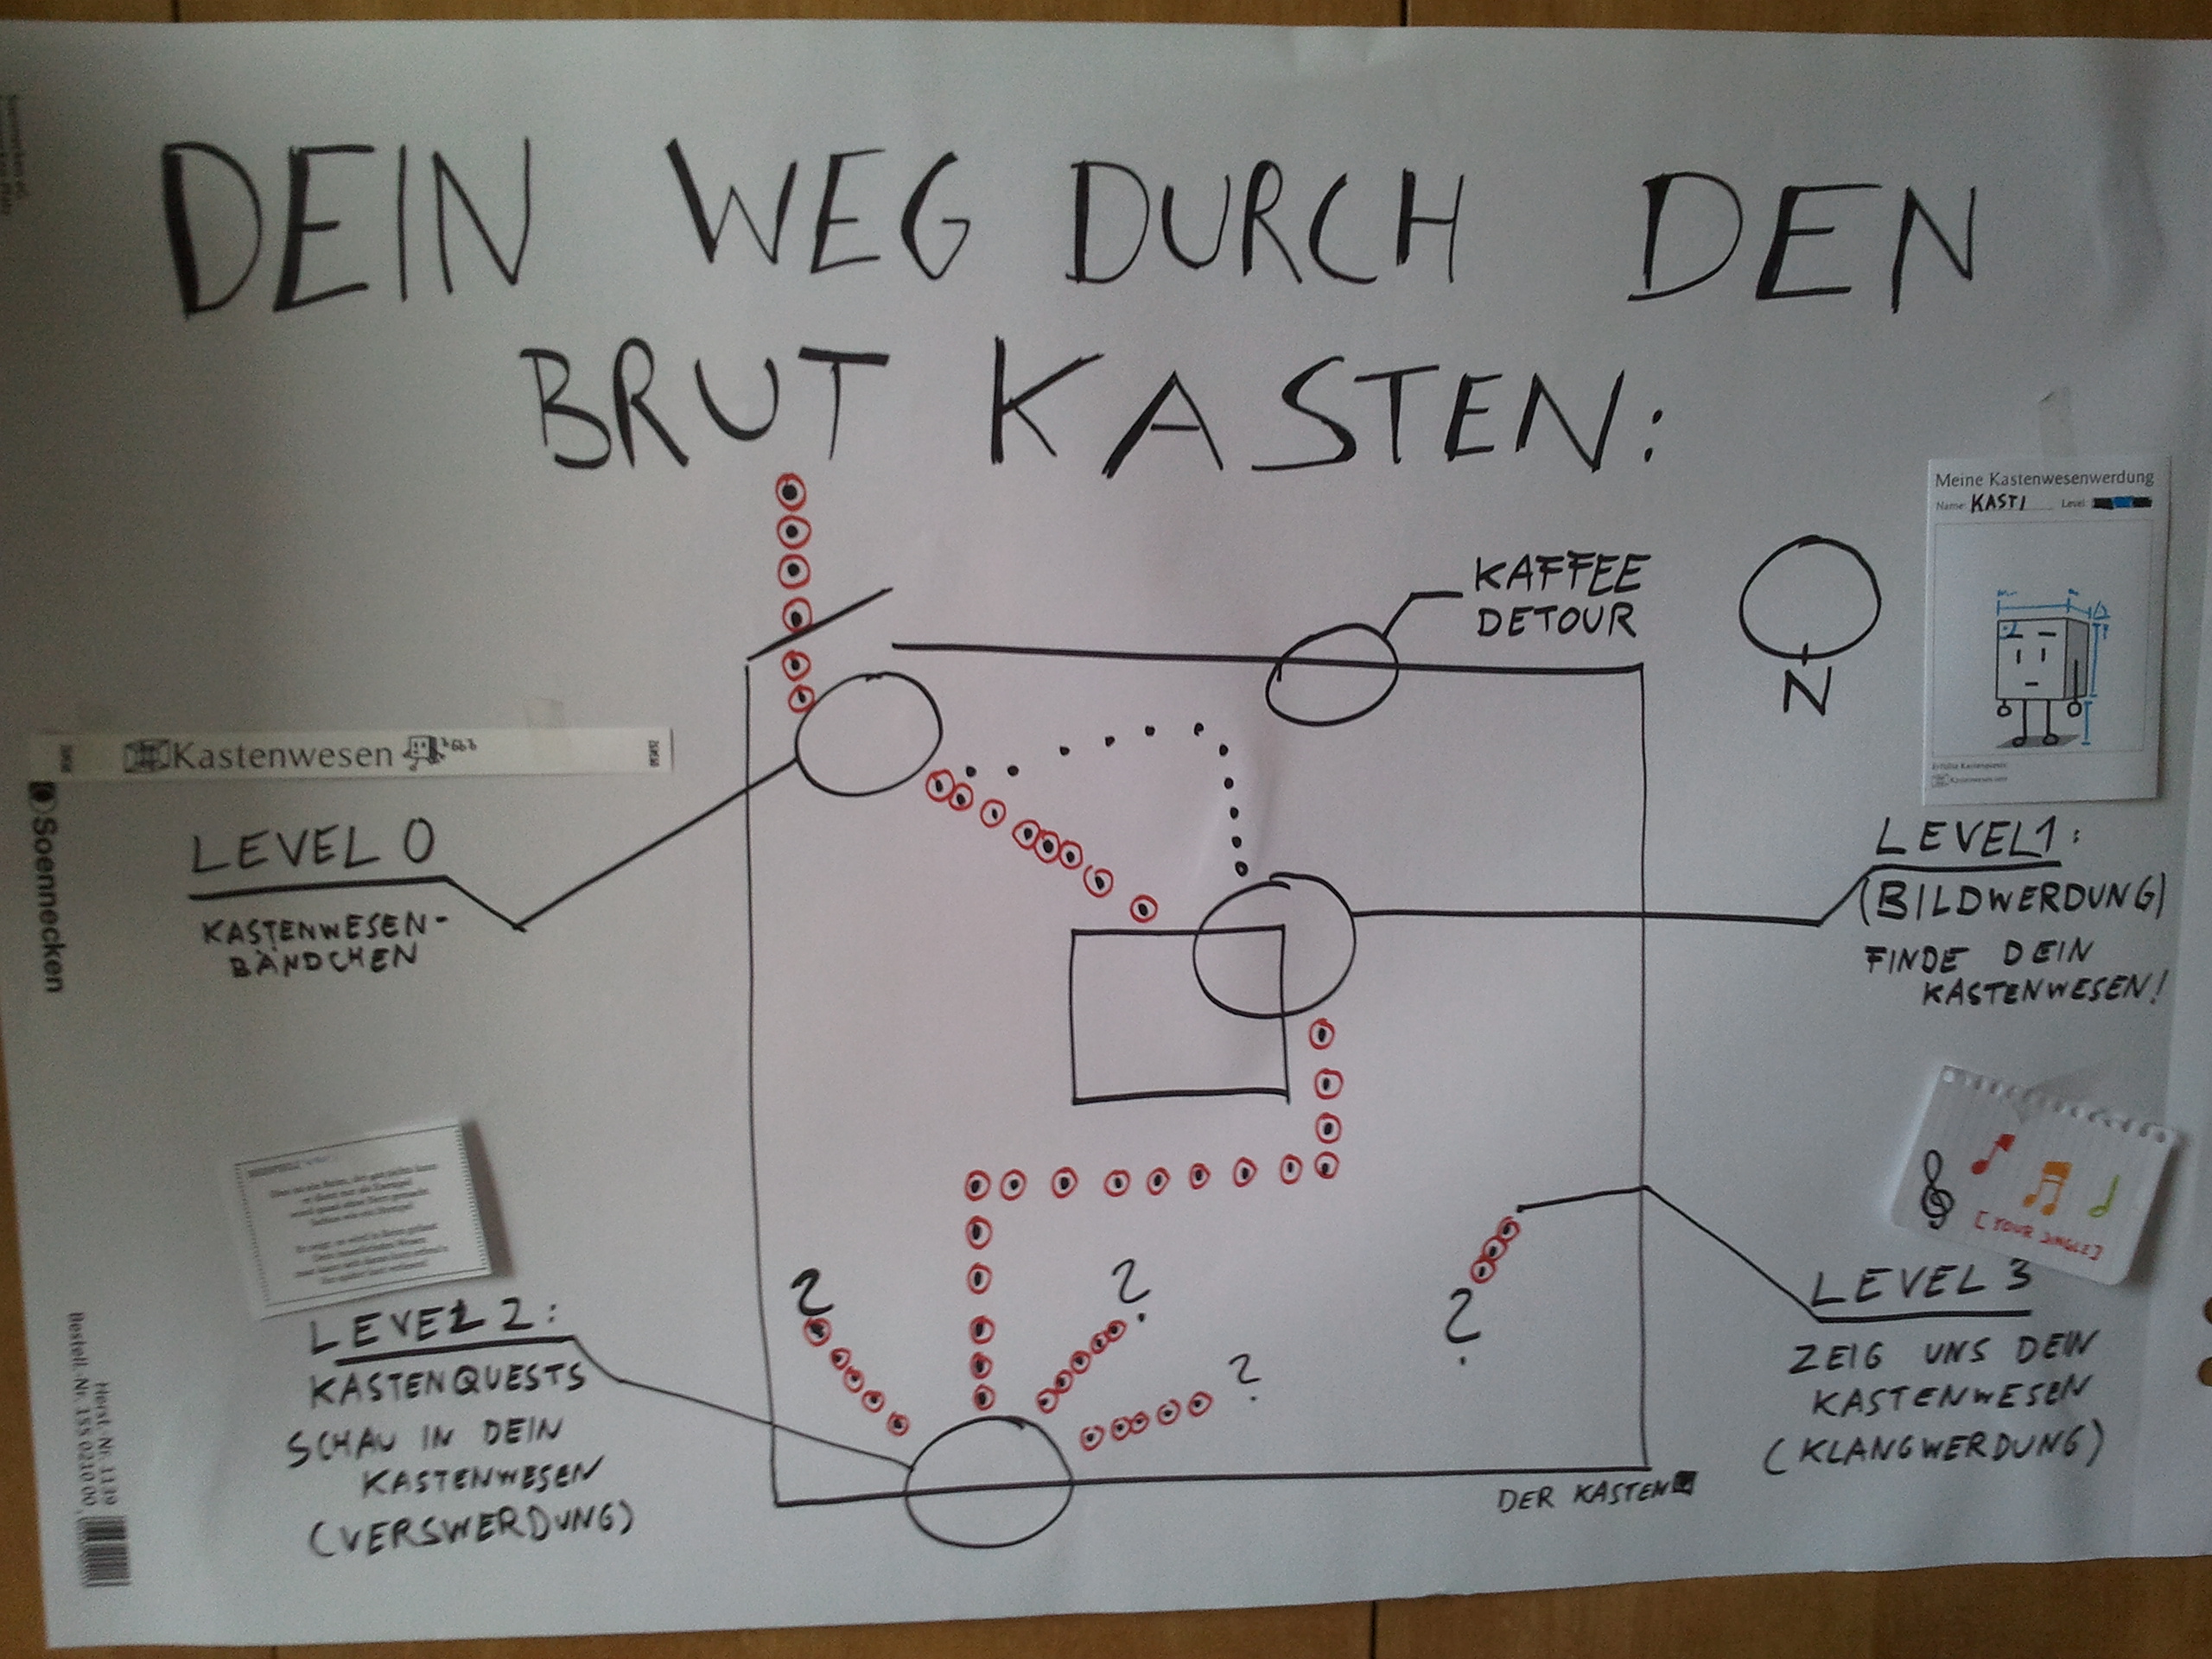 DEIN WEG DURCH DEN
BRUT KASTEN:
KAFFEE
DETOUR
N
Meine Kastenwesenwerdung
Name: KASTI Level:
Erfüllte Kastenquests:
Kastenwesen
Kastenwesen
Soennecken
LEVEL 0
KASTENWESEN-
BÄNDCHEN
LEVEL 1:
(BILDWERDUNG)
FINDE DEIN
KASTENWESEN!
LEVEL 2:
KASTENQUESTS
SCHAU IN DEIN
KASTENWESEN
(VERSWERDUNG)
?
?
?
?
[YOUR JINGLE]
LEVEL 3
ZEIG UNS DEIN
KASTENWESEN
(KLANGWERDUNG)
DER KASTEN
Herst. Nr. 1139
Bestell. Nr. 155 021000